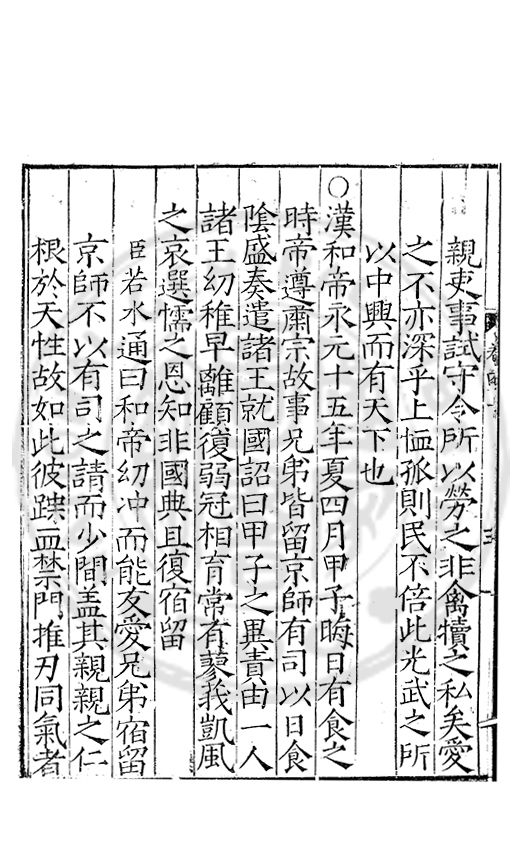 親吏事試守令所以勞之非禽犢之私矣愛
之不亦深乎上恤孤則民不倍此光武之所
以中興而有天下也
○漢和帝永元十五年夏四月甲子晦日有食之
時帝遵肅宗故事兄弟皆留京師有司以日食
陰盛奏遣諸王就國詔曰甲子之異責由一人
諸王幼稚早離顧復弱冠相育常有蓼莪凱風
之哀選懦之恩知非國典且復宿留
臣若水通曰和帝幼冲而能友愛兄弟宿留
京師不以有司之請而少間盖其親親之仁
根於天性故如此彼蹀血禁門推刃同氣者